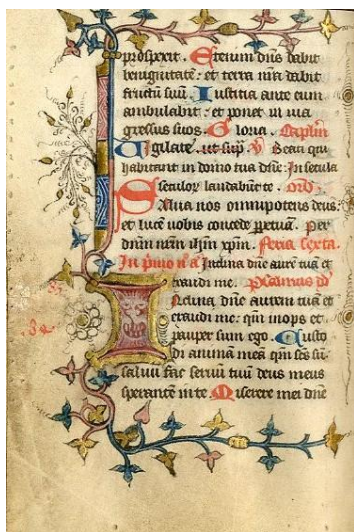 prospexit. Etenim dns dabit
benignitate: et terra nra dabit
fructu suu. Iustitia ante eum
ambulabit: et ponet in uia
gressus suos. Gloria. Capitm
Uigilate. ut sup. V. Beati qui
habitant in domo tua dne: In secula
seculor laudabut te. orō
Salua nos omnipotens deus:
et lucē nobis concede ppetuā. Per
dnm nrm ihm xpm. Feria sexta.
In primo n a Inclina dne aurē tuā et
exaudi me. Psalmus dd
Inclina dne aurem tuā et
exaudi me: qm inops et
pauper sum ego. Custo
di animā meā qm scs sū:
saluū fac seruū tuū deus meus
sperantē in te. Miserere mei dne